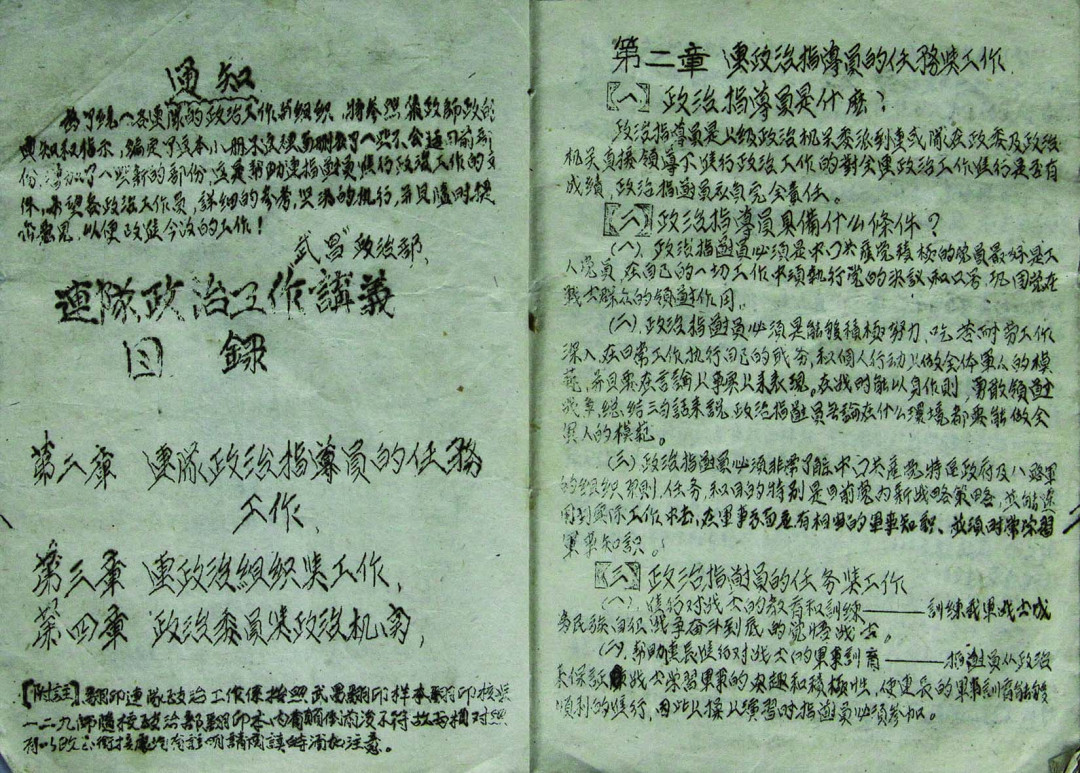 通知
為了統一各連隊的政治工作与組织，特参照儀政師政的
與叔权指示，編定了这本小册
份，添加了一些新的部份，这是幫助連指遵更進行政治工作的文
件，希望各政治工作員，詳细的参考，灵活的执行，并且隨时提
示意見，以便改進今後的工作！
武昌政治部，
連隊政治工作講義
目錄
第二章 連隊政治指導員的任務
工作，
第三章 連政治組织與工作，
第四章 政治委員與政治机関，
【附註】翻印連隊政治工作係按照武昌翻印样本翻印核與
一二九師隨校政治部翻印本内有顛倒前後不符故两相对照
有以改正衔接處均有註明請閱讀時須加注意。
第二章 連政治指導員的任務與工作
【一】政治指導員是什麽？
政治指導員是上级政治机关委派到連或隊在政委及政治
机关直接領導下進行政治工作的對全連政治工作進行是否有
成績，政治指導員应負完全責任。
【二】政治指導員具備什么條件？
（一）、政治指導員必須是中国共產党積極的党員最好是工
人党員，在自己的一切工作中須執行党的决議和义务，巩固党在
战士群众的領導作用。
（二）、政治指導員必須是能够積極努力、吃苦耐劳工作
深入，在日常工作，执行自己的职务，和個人行动上做全体軍人的模
范，并且要在言論上事实上来表現。在战时能以身作則，勇敢領導
战争，總结三句話来說，政治指導員無論在什么環境都要能做全
軍人的模範。
（三）、政治指導員必須非常了解中国共產党特區政府及八路軍
的組织、原則、任务、和目的特别是目前党的新战略策略，并能運
用到实际工作中去，在軍事方面应有相当的軍事知識、並須时常学習
軍事知識。
【三】政治指導員的任务與工作
（一）、進行对战士的教育和訓練——訓練我軍战士成
為民族、自衛战争奋斗到底的觉悟战士。
（二）、幫助連長進行对战士的軍事訓育——指導員从政治
上保証战士学習軍事的兴趣和積極性，使連長的軍事訓育能够
順利的進行，因此上操上演習时指導員必須参加。